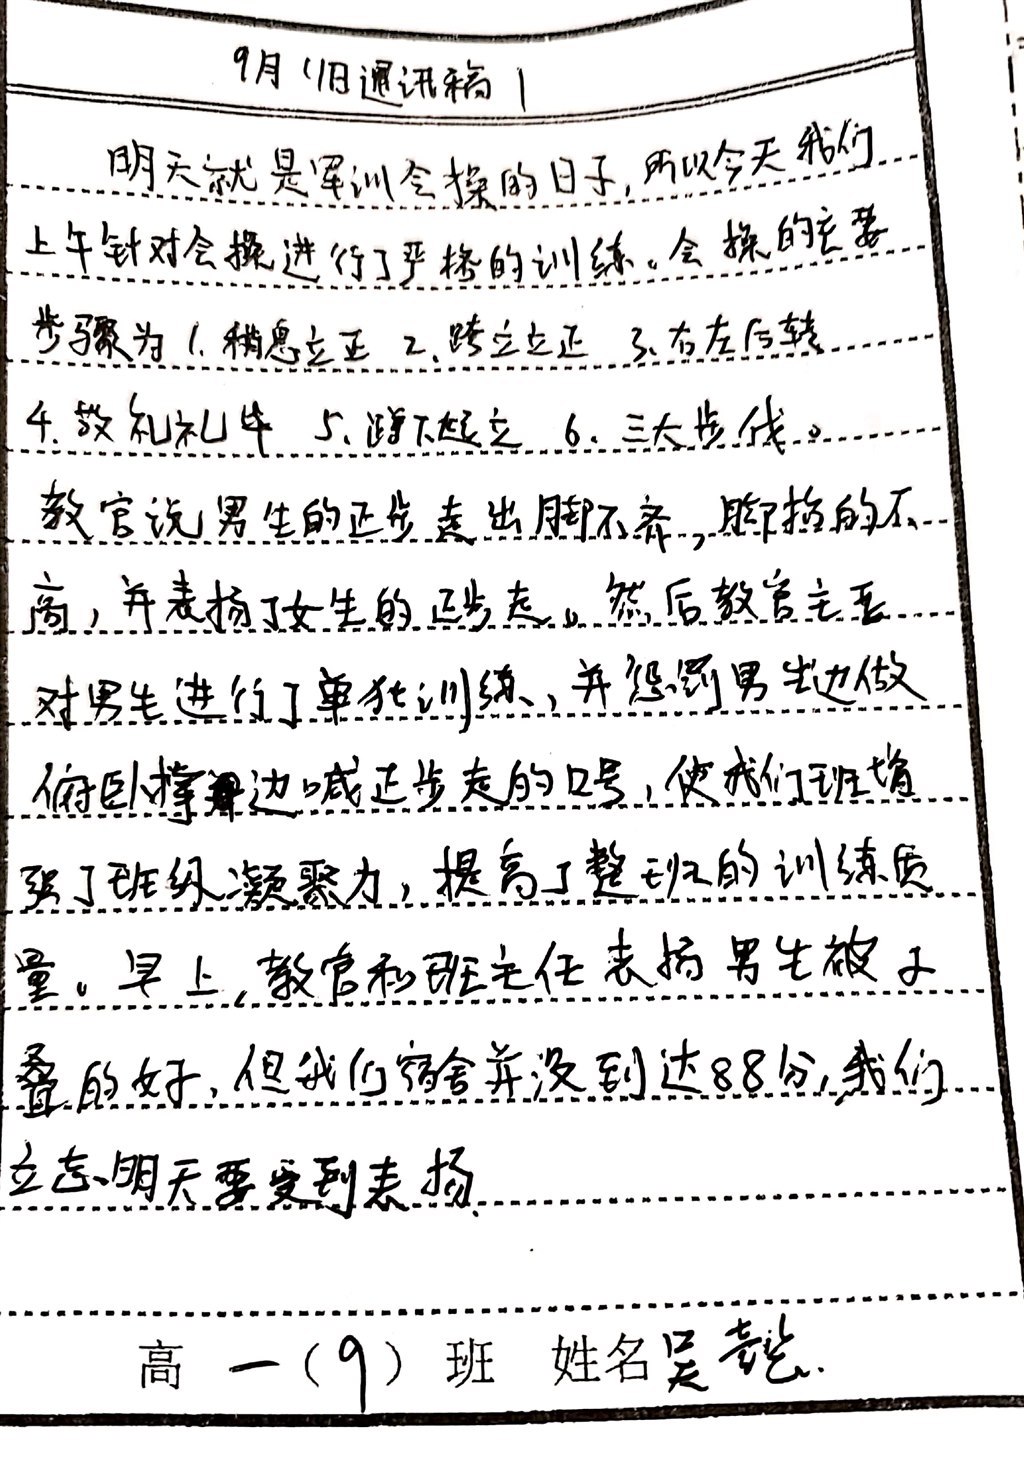 9月11日通讯稿1
明天就是军训会操的日子,所以今天我们
上午针对会操进行了严格的训练。会操的主要
步骤为 1.稍息立正 2.跨立立正 3.右左后转
4.敬礼礼毕 5.蹲下起立 6.三大步伐。
教官说男生的正步走出脚不齐,脚抬的不
高,并表扬了女生的正步走。然后教官主要
对男生进行了单独训练,并惩罚男生边做
俯卧撑边喊正步走的口号,使我们班增
强了班级凝聚力,提高了整班的训练质
量。早上,教官和班主任表扬男生被子
叠的好,但我们宿舍并没到达88分,我们
立志明天要受到表扬.
高一(9)班 姓名吴